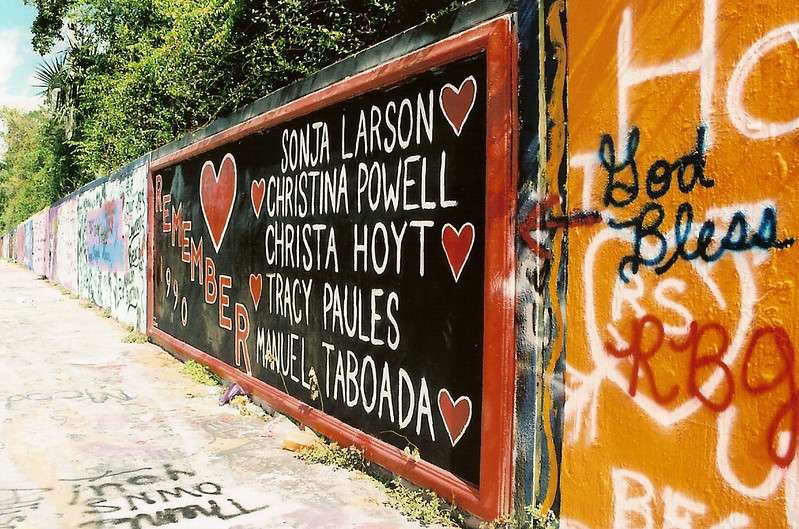 REMEMBER
990
SONJA LARSON
CHRISTINA POWELL
CHRISTA HOYT
TRACY PAULES
MANUEL TABOADA
Ho
God
Bless
RS
RBG
BE
OWNS
YOU